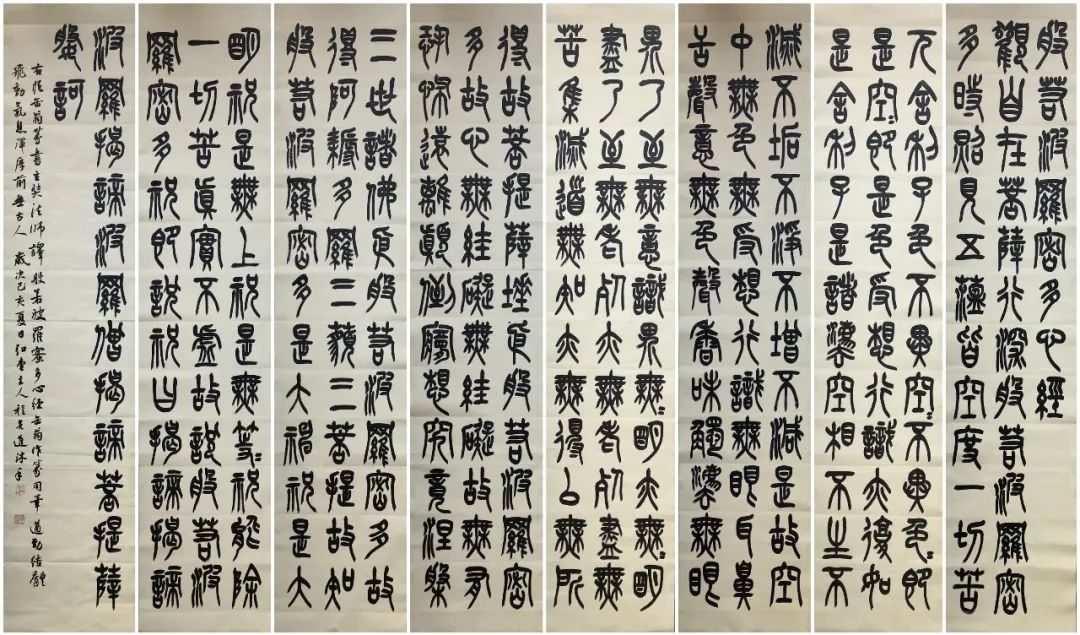 般若波羅密多心經
觀自在菩薩行深般若波羅密
多時照見五蘊皆空度一切苦
厄舍利子色不異空=不異色=即
是空=即是色受想行識亦復如
是舍利子是諸灋空相不生不
滅不垢不淨不增不減是故空
中無色無受想行識無眼耳鼻
舌聲意無色聲香味觸灋無眼
界乃至無意識界無=明亦無=明
盡乃至無老死亦無老死盡無
苦集滅道無知亦無得以無所
得故菩提薩埵依般若波羅密
多故心無絓礙無絓礙故無有
恐怖遠離顛倒夢想究竟涅槃
三世諸佛依般若波羅密多故
得阿耨多羅三藐三菩提故知
般若波羅密多是大神祝是大
明祝是無上祝是無等=祝能除
一切苦真實不虛故說般若波
羅密多祝即說祝曰揭諦揭諦
波羅揭諦波羅僧揭諦菩提薩
婆訶
右臨缶翁篆書玄奘法師譯般若波羅蜜多心經缶翁作篆用筆遒勁結體
飛動氣息渾厚前無古人 歲次己亥夏日 堂主人 沐手